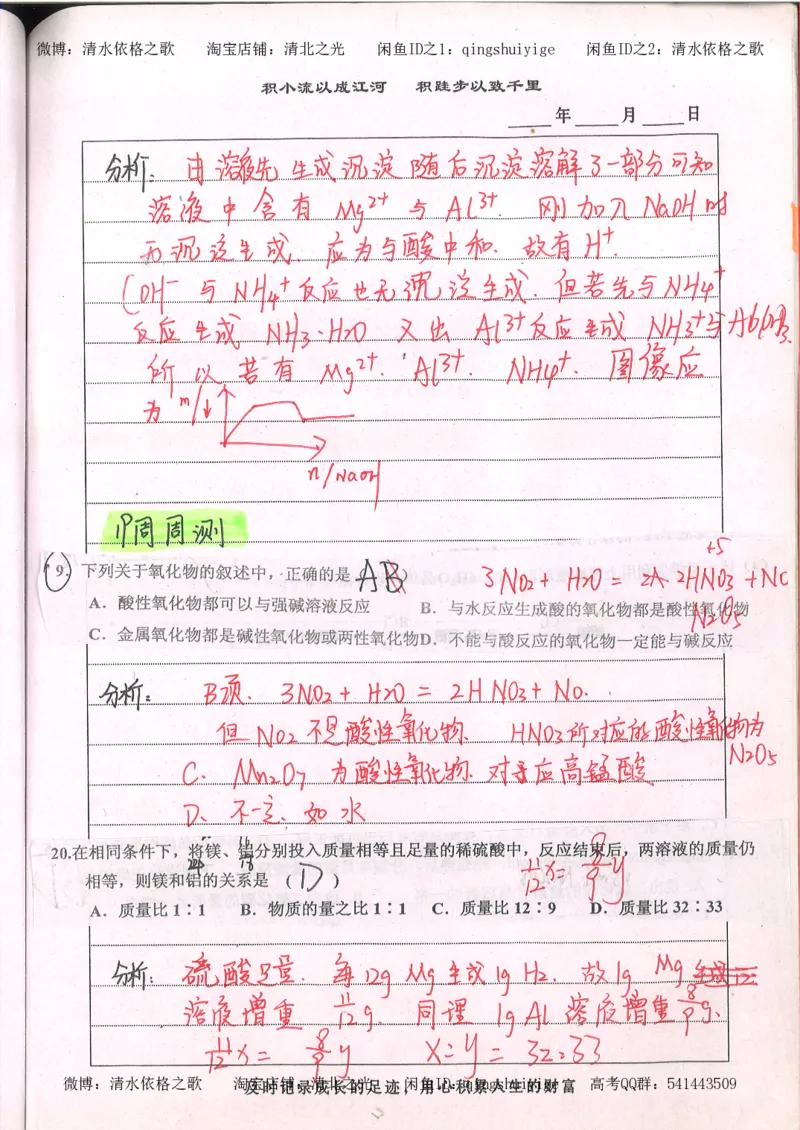 微博：清水依格之歌 淘宝店铺：清北之光 闲鱼ID之1：qingshuiyige 闲鱼ID之2：清水依格之歌
积小流以成江河 积跬步以致千里
年 月 日
分析：由溶液先生成沉淀随后沉淀溶解了一部分可知
溶液中含有 Mg²⁺ 与 Al³⁺. 刚加入 NaOH 时
无沉淀生成. 应为与酸中和. 故有 H⁺.
(OH⁻ 与 NH₄⁺ 反应也无沉淀生成. 但若先与 NH₄⁺
反应生成 NH₃·H₂O 又出 Al³⁺ 反应生成 NH₃⁺与 Al(OH)₃
所以若有 Mg²⁺. Al³⁺. NH₄⁺. 图像应
为 m/↓
n/NaOH
周周测
9. 下列关于氧化物的叙述中，正确的是 AB
3NO₂ + H₂O = 2HNO₃ + NO
+5
A．酸性氧化物都可以与强碱溶液反应 B．与水反应生成酸的氧化物都是酸性氧化物
N₂O₅
C．金属氧化物都是碱性氧化物或两性氧化物 D．不能与酸反应的氧化物一定能与碱反应
分析：B项. 3NO₂ + H₂O = 2HNO₃ + NO.
但 NO₂ 不是酸性氧化物. HNO₃所对应的酸性氧化物为
N₂O₅
C. Mn₂O₇ 为酸性氧化物. 对应高锰酸
D. 不一定. 如水
20.在相同条件下，将镁、铝分别投入质量相等且足量的稀硫酸中，反应结束后，两溶液的质量仍
相等，则镁和铝的关系是 （ D ） 11/12 x = 8/9 y
A．质量比 1∶1 B．物质的量之比 1∶1 C．质量比 12∶9 D．质量比 32∶33
分析：硫酸足量. 每 12g Mg 生成 1g H₂. 故 1g Mg
溶液增重 11/12 g. 同理 1g Al 溶液增重 8/9 g.
11/12 x = 8/9 y x:y = 32:33
微博：清水依格之歌 淘宝店铺：清北之光 闲鱼ID：qingshuiyige 高考QQ群：541443509
及时记录成长的足迹，用心积累人生的财富